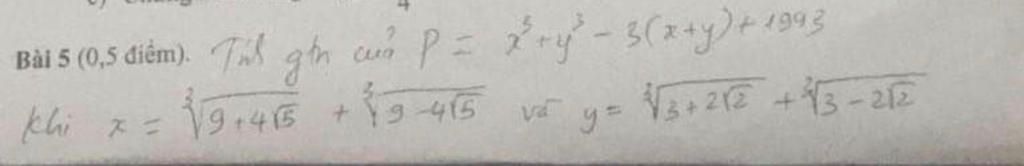 Bài 5 (0,5 điểm). Tính gtn của P = x³ + y³ - 3(x+y) + 1993
khi x = ∛(9+4√5) + ∛(9-4√5) và y = ∛(3+2√2) + ∛(3-2√2)